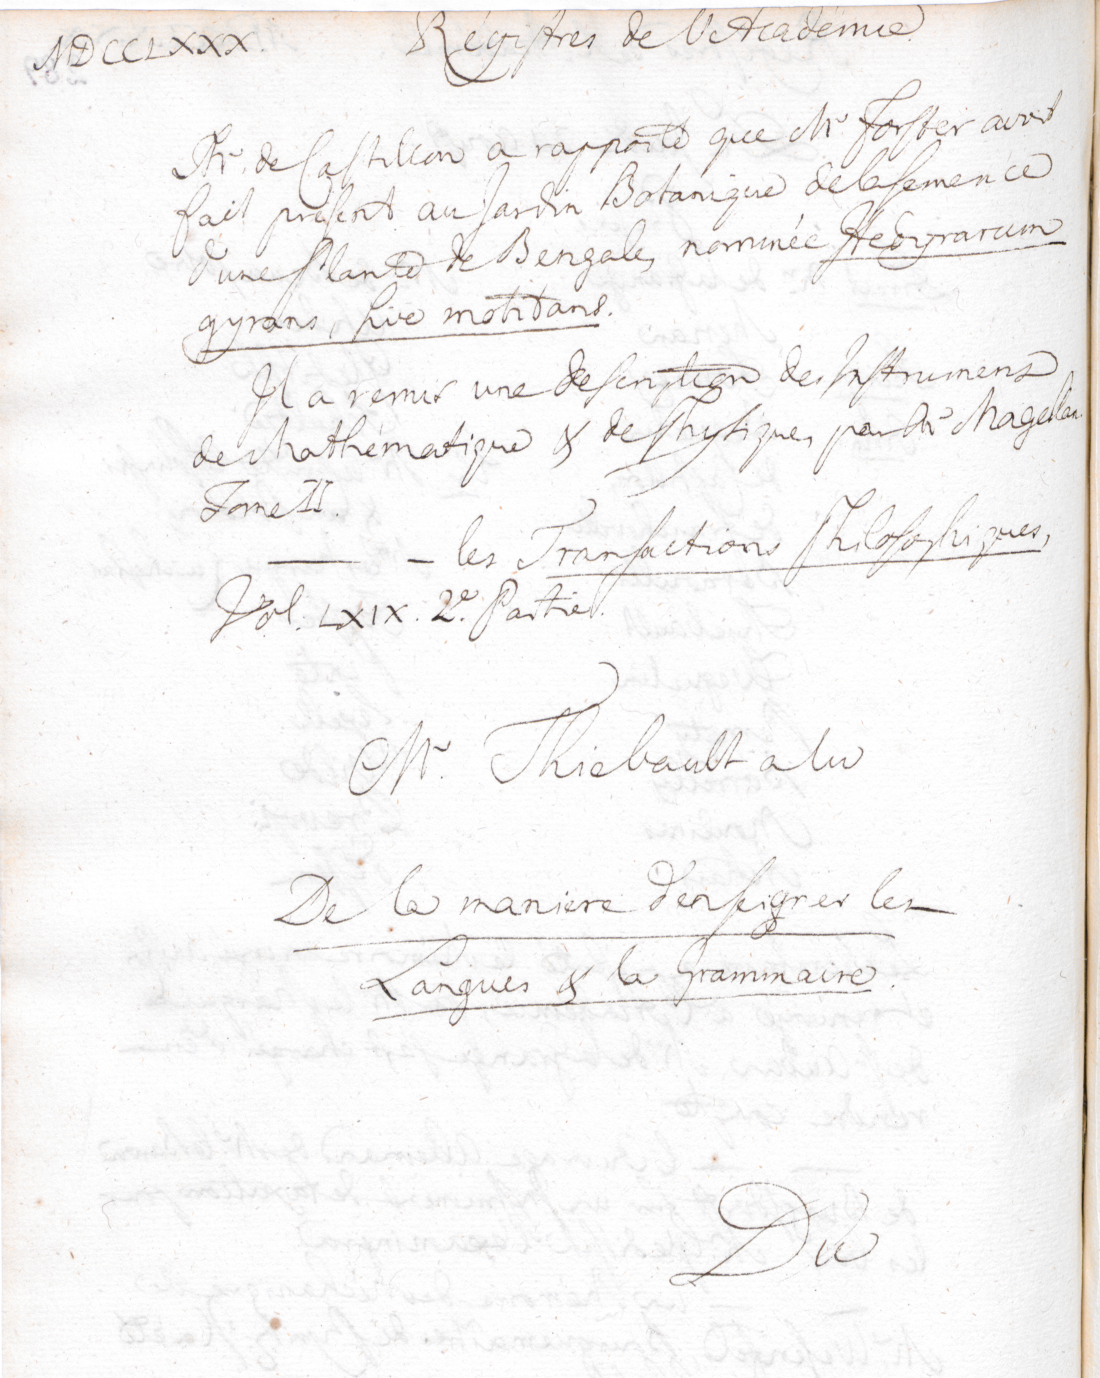 MDCCLXXX. Régistres de l'Académie
Mr. de Castillon a rapporté que Mr. Forster avoit
fait présent au Jardin Botanique de la semence
d'une Plante de Bengale, nommée Hedyrarum
gyrans, sive motitans.
Il a remis une description des Instrumens
de Mathématique & de Physique, par Mr. Magellan
Tome II.
— — les Transactions Philosophiques,
Vol. LXIX. 2e. Partie.
Mr. Thiebault a lu
De la maniere d'enseigner les
Langues & la Grammaire.
Du